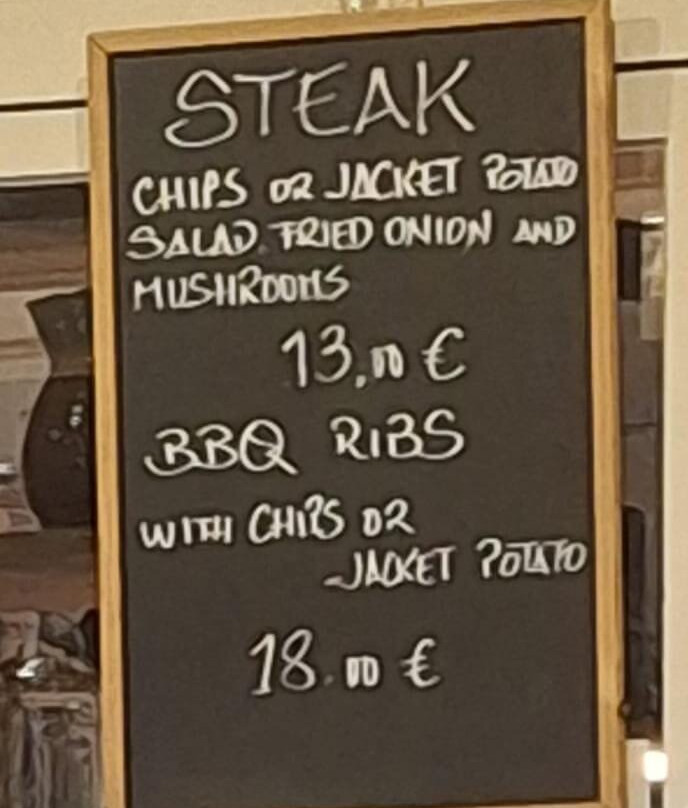 STEAK
CHIPS OR JACKET POTATO
SALAD FRIED ONION AND
MUSHROOMS
13,00 €
BBQ RIBS
WITH CHIPS OR
JACKET POTATO
18.00 €